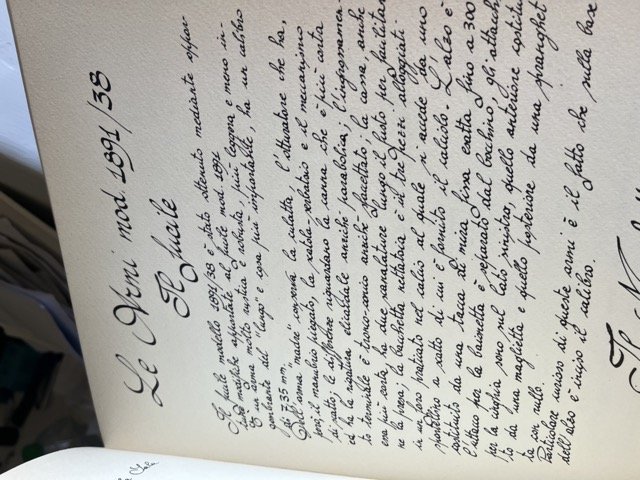 Le Armi mod. 1891/38
Il fucile
Il fucile modello 1891/38 è stato ottenuto mediante oppor-
tune modifiche apportate al fucile mod. 1891.
È un'arma molto rustica e robusta, più leggera e meno in-
gombrante del "lungo" e cosa più importante, ha un calibro
di 7,35 mm.
Dell'arma "madre" conserva la culatta, l'otturatore che ha,
però, il manubrio piegato, la scatola serbatoio e il meccanismo
di scatto; le differenze riguardano la canna che è più corta
ed ha la rigatura elicoidale anziché parabolica; l'ingrossamen-
to terminale è tronco-conico anziché sfaccettato; la cassa, anche
essa più corta, ha due scanalature lungo il fusto per facilitar
ne la presa; la bacchetta nettatoia è il tre pezzi alloggiati
in un foro praticato nel calcio al quale si accede da uno
sportellino a scatto di cui è fornito il calciolo. L'alzo è
sostituito da una tacca di mira fissa esatta fino a 300
l'attacco per la baionetta è separato dal bocchino; gli attacch
per la cinghia sono sul lato sinistro, quello anteriore costitu
to da una maglietta e quello posteriore da una spranghet
ta con rullo.
Particolare curioso di queste armi è il fatto che sulla base
dell'alzo è inciso il calibro.
Il